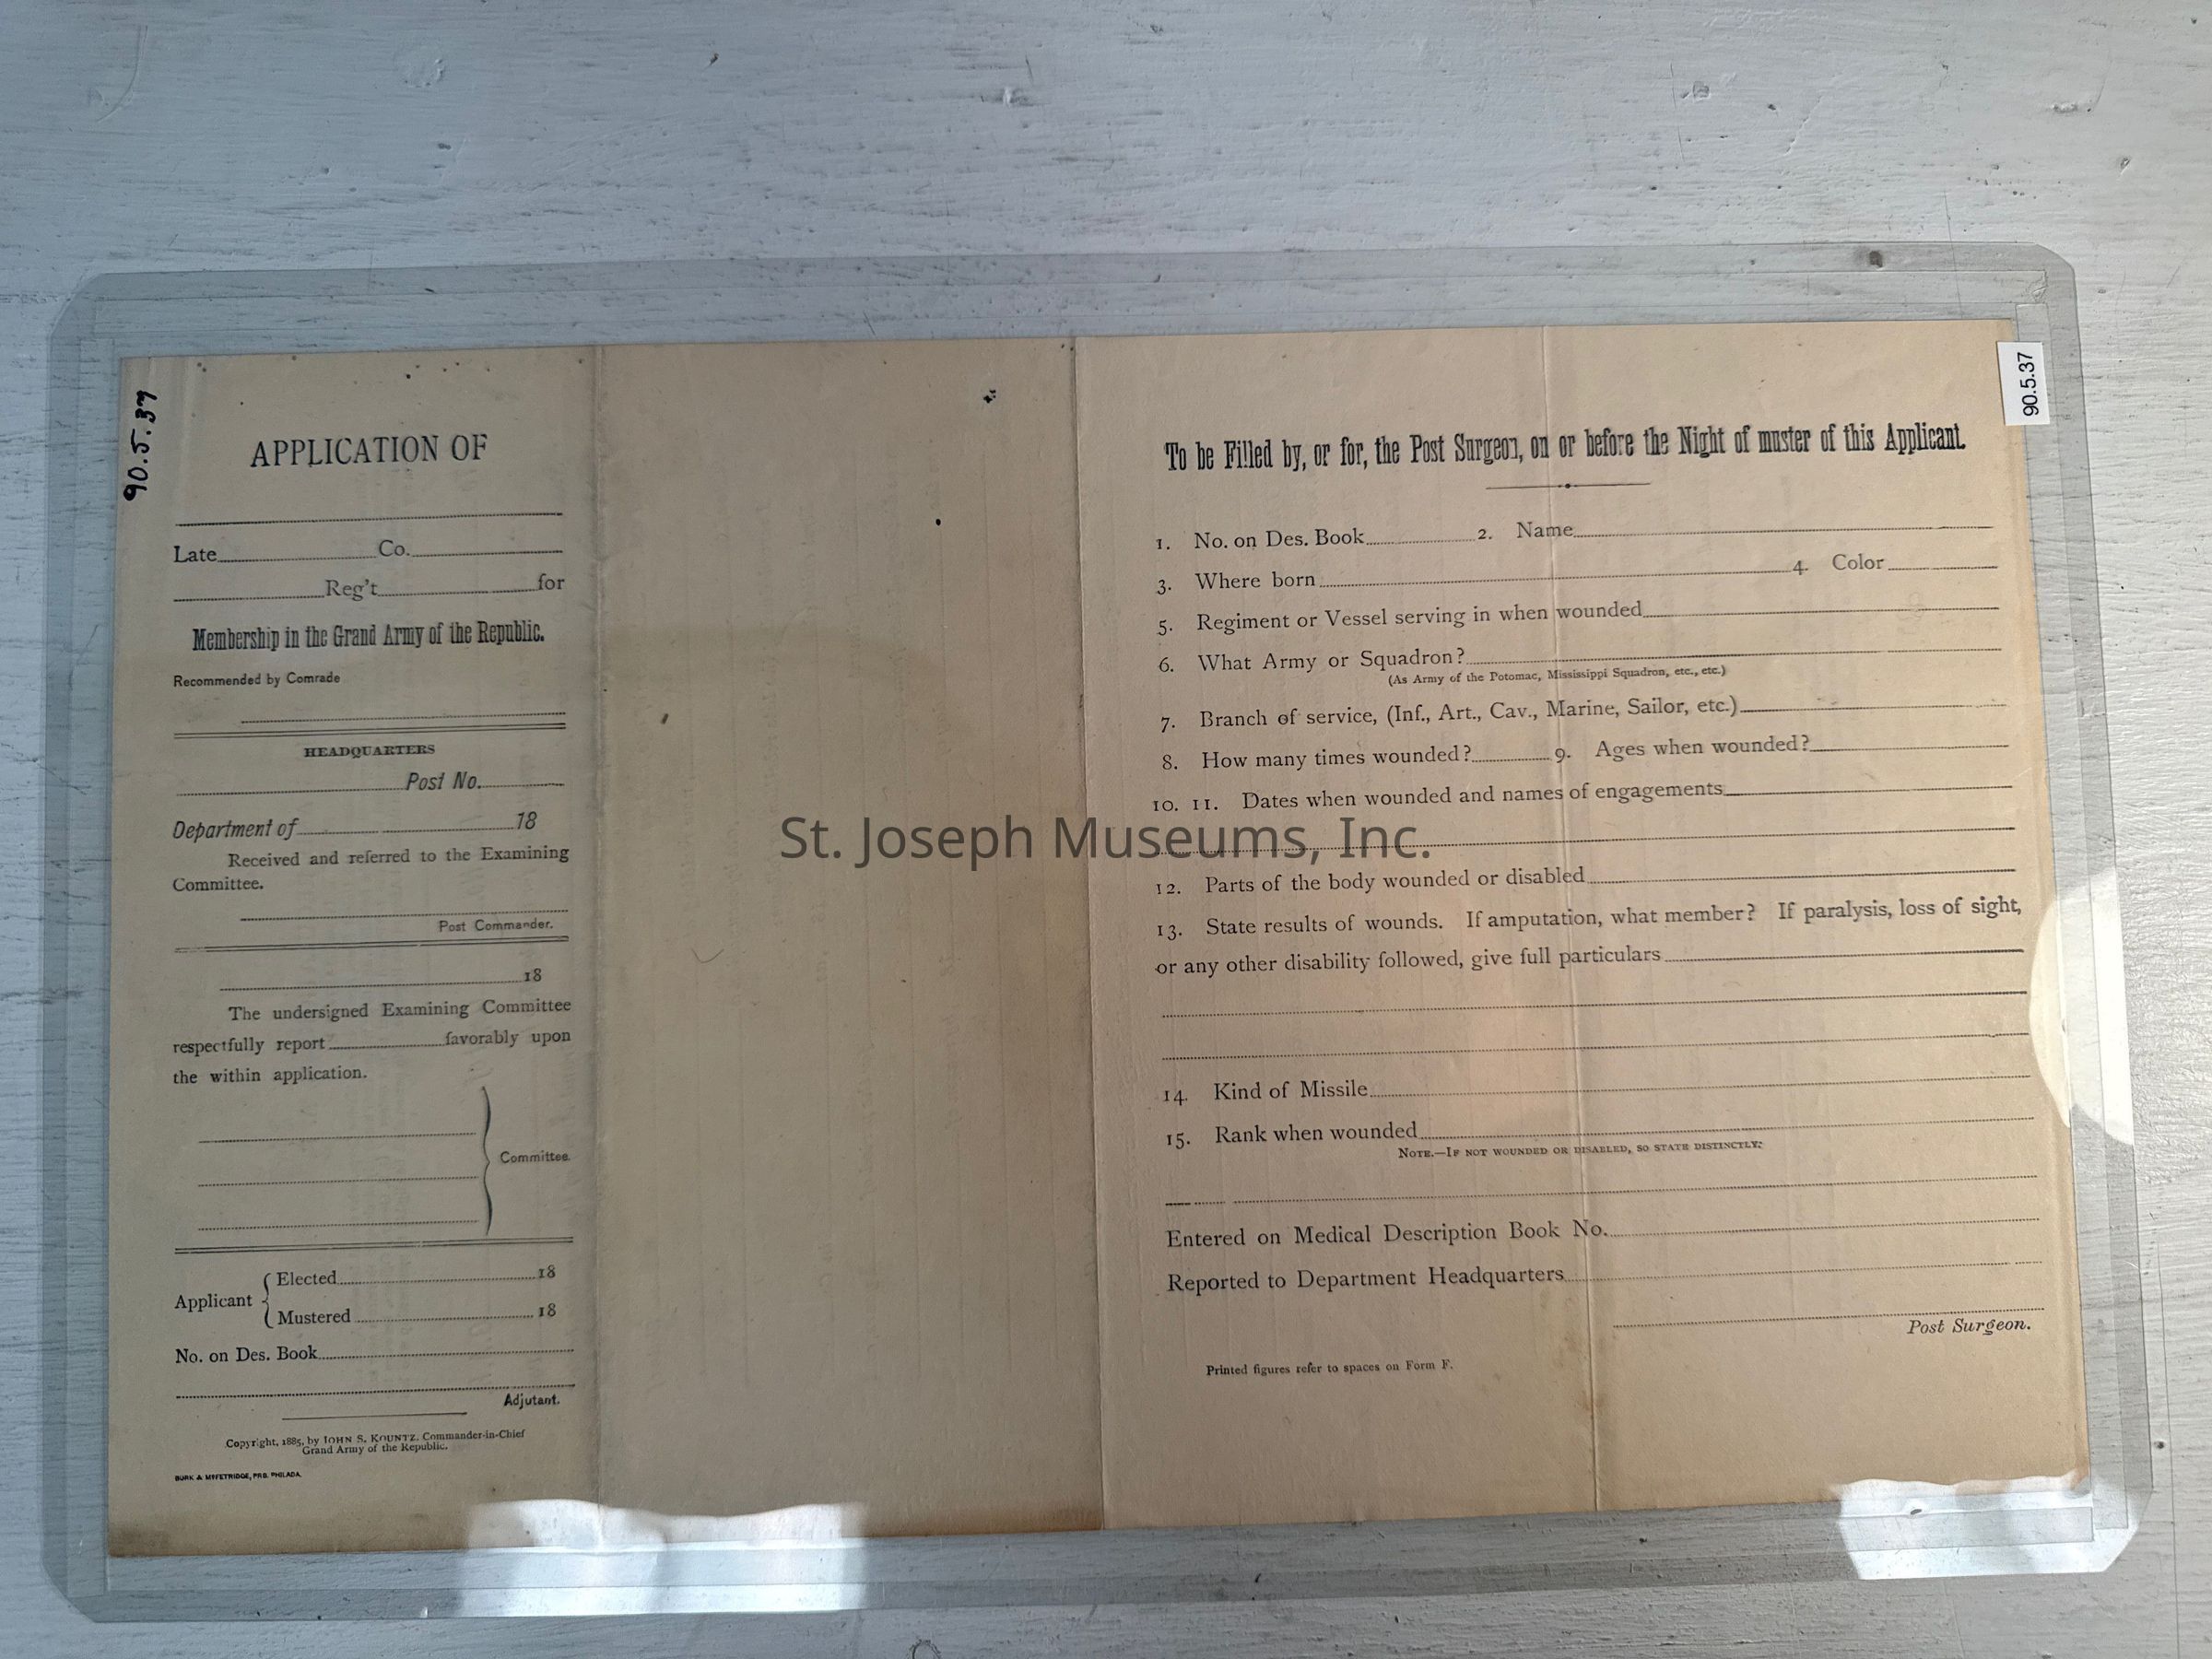 90.5.37
APPLICATION OF
Late Co.
Reg't for
Membership in the Grand Army of the Republic.
Recommended by Comrade
HEADQUARTERS
Post No.
Department of 18
Received and referred to the Examining
Committee.
Post Commander.
18
The undersigned Examining Committee
respectfully report favorably upon
the within application.
Committee.
Applicant { Elected 18
Mustered 18
No. on Des. Book
Adjutant.
Copyright, 1885, by JOHN S. KOUNTZ, Commander-in-Chief
Grand Army of the Republic.
BURK & McFETRIDGE, PRS. PHILADA.
90.5.37
To be Filled by, or for, the Post Surgeon, on or before the Night of muster of this Applicant.
1. No. on Des. Book 2. Name
3. Where born 4. Color
5. Regiment or Vessel serving in when wounded
6. What Army or Squadron?
(As Army of the Potomac, Mississippi Squadron, etc., etc.)
7. Branch of service, (Inf., Art., Cav., Marine, Sailor, etc.)
8. How many times wounded? 9. Ages when wounded?
10. 11. Dates when wounded and names of engagements
12. Parts of the body wounded or disabled
13. State results of wounds. If amputation, what member? If paralysis, loss of sight,
or any other disability followed, give full particulars
14. Kind of Missile
15. Rank when wounded
NOTE.—IF NOT WOUNDED OR DISABLED, SO STATE DISTINCTLY.
Entered on Medical Description Book No.
Reported to Department Headquarters
Post Surgeon.
Printed figures refer to spaces on Form F.
St. Joseph Museums, Inc.